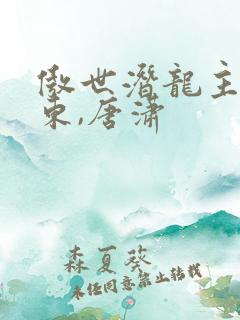 傲世潛龍主
宋,唐潇
森夏葵
未经同意禁止转载